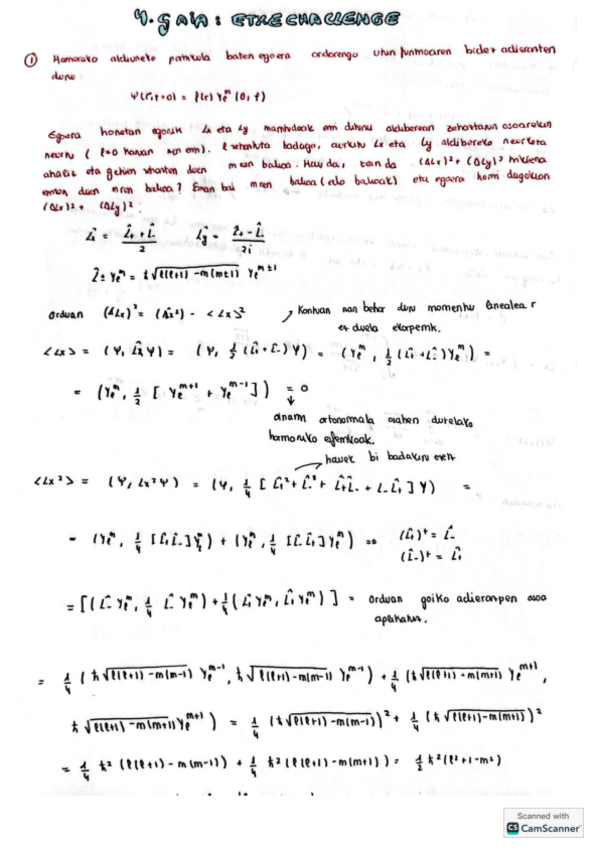 4. GAIA: ETXE CHALLENGE
① Hamarako aldiuneko partikula baten egoera ondorengo uhin funtzioaren bidez adierazten
dene
Ψ(r, t=0) = f(r) Yₗᵐ (θ, φ)
Egoera honetan egonik Lx eta Ly
neurtu ( l=0 kasuan izan ezin). l zehaztuta badago, aurkitu Lx eta Ly aldibereko neurketa
ahalik eta gehien zehazten duen m-ren balioa. Hau da, zein da (ΔLx)²+(ΔLy)² txikiena
ematen duen m-ren balioa? Eman bai m-ren balioa (edo balioak) eta egoera horri dagokion
(ΔLx)² + (ΔLy)².
L̂x = (L̂+ + L̂-)/2 L̂y = (L̂+ - L̂-)/2i
L̂± Yₗᵐ = ħ√(l(l+1)-m(m±1)) Yₗᵐ±¹
Orduan (ΔLx)² = <L̂x²> - <Lx>² Kontuan izan behar dugu momentu linealear
ez duela ekarpenik.
<Lx> = (Ψ, L̂xΨ) = (Ψ, 1/2 (L̂+ + L̂-)Ψ) = (Yₗᵐ, 1/2 (L̂+ + L̂-)Yₗᵐ) =
= (Yₗᵐ, 1/2 [Yₗᵐ⁺¹ + Yₗᵐ⁻¹]) = 0
oinarri ortonormala osatzen dutelako
harmoniko esferikoak.
hauek bi badakigu ezetz
<Lx²> = (Ψ, Lx²Ψ) = (Ψ, 1/4 [L̂+² + L̂-² + L̂+L̂- + L̂-L̂+]Ψ) =
= (Yₗᵐ, 1/4 [L̂+L̂-]Yₗᵐ) + (Yₗᵐ, 1/4 [L̂-L̂+]Yₗᵐ) => (L̂+)⁺ = L̂-
(L̂-)⁺ = L̂+
= [(L̂- Yₗᵐ, 1/4 L̂- Yₗᵐ) + 1/4 (L̂+ Yₗᵐ, L̂+ Yₗᵐ)] = Orduan goiko adierazpen osoa
aplikatuz.
= 1/4 (ħ√(l(l+1)-m(m-1)) Yₗᵐ⁻¹, ħ√(l(l+1)-m(m-1)) Yₗᵐ⁻¹) + 1/4 (ħ√(l(l+1)-m(m+1)) Yₗᵐ⁺¹,
ħ√(l(l+1)-m(m+1)) Yₗᵐ⁺¹) = 1/4 (ħ√(l(l+1)-m(m-1)))² + 1/4 (ħ√(l(l+1)-m(m+1)))²
= 1/4 ħ² (l(l+1)-m(m-1)) + 1/4 ħ² (l(l+1)-m(m+1)) = 1/2 ħ² (l²+l-m²)
Scanned with
CS CamScanner